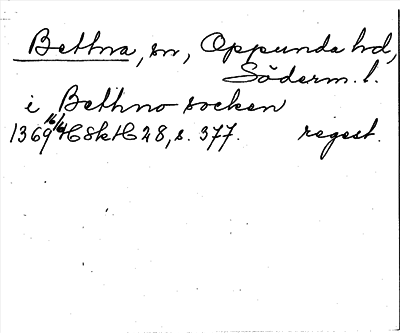 Bettna, sn, Oppunda hd,
Söderm. l.
i Bethno socken
1369 16/4 HSkH 28, s. 377. regest.